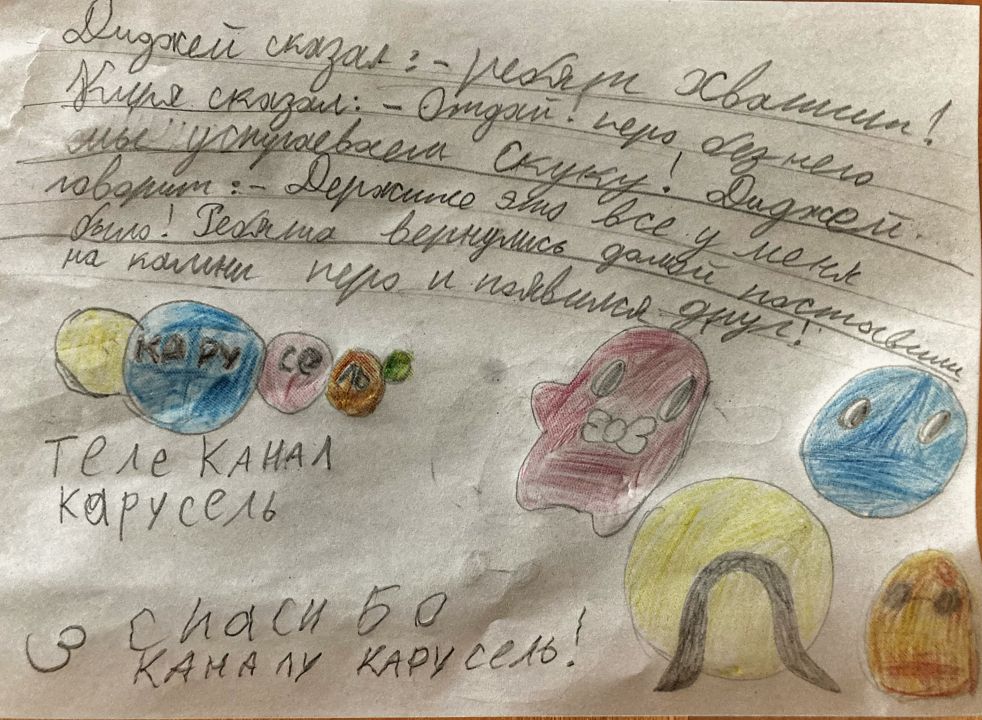 Диджей сказал: - ребята хватит!
Киря сказал: - Отдай перо без него
мы успугаеваем скуку! Диджей
говорит: - Держите это все у меня
было! Ребята вернулись домой поставили
на камни перо и появился друг!
КАРУСЕЛЬ
ТЕЛЕ КАНАЛ
КАРУСЕЛЬ
СПАСИБО
КАНАЛУ КАРУСЕЛЬ!